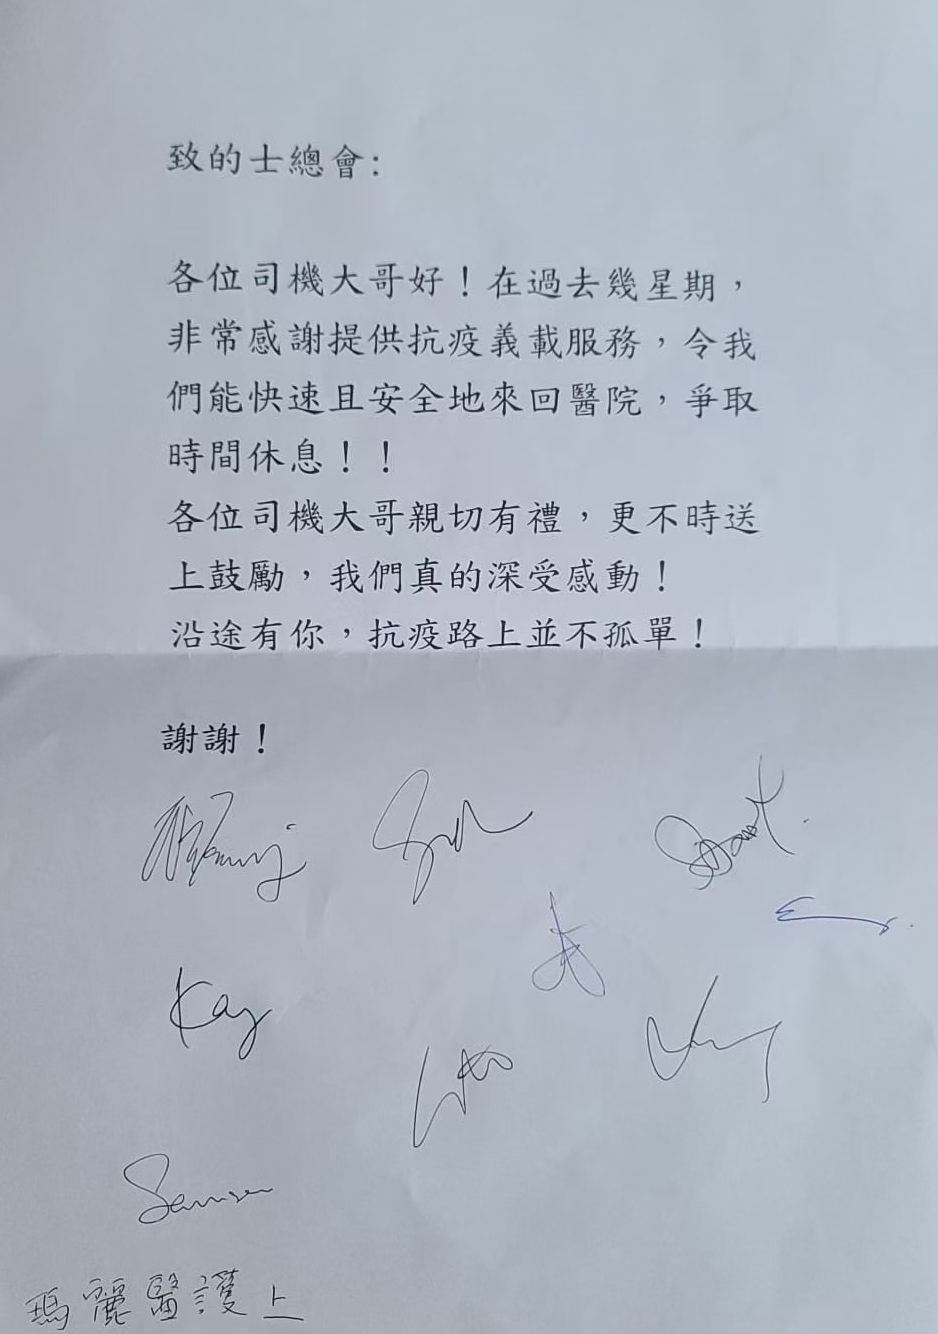 致的士總會:
各位司機大哥好！在過去幾星期，
非常感謝提供抗疫義載服務，令我
們能快速且安全地來回醫院，爭取
時間休息！！
各位司機大哥親切有禮，更不時送
上鼓勵，我們真的深受感動！
沿途有你，抗疫路上並不孤單！
謝謝！
Kay
瑪麗醫護上